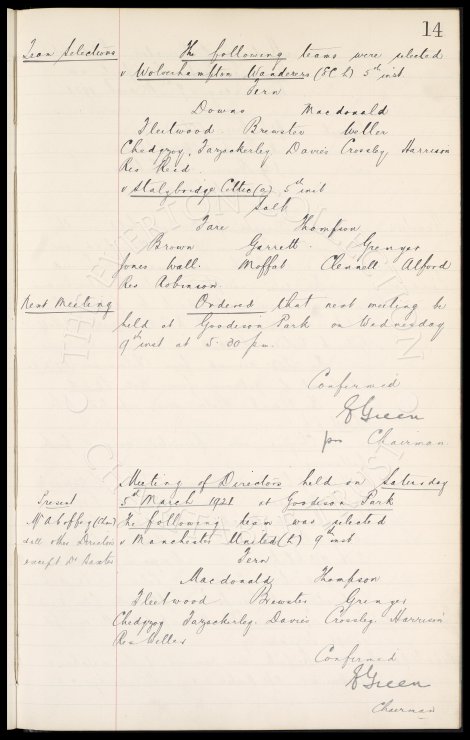 14
Team Selections The following teams were selected
v Wolverhampton Wanderers (EC h) 5th inst
Fern
Downs Macdonald
Fleetwood. Brewster Weller
Chedgzoy, Fazackerley Davies Crossley, Harrison
Res Reid.
v Stalybridge Celtic (a) 5th inst
Salt
Fare Thompson
Brown Garrett. Grenyer
Jones Wall. Moffat Clennell Alford
Res Robinson.
Next Meeting Ordered that next meeting be
held at Goodison Park on Wednesday
9th inst at 5.30 pm.
Confirmed
Green
pm Chairman
Meeting of Directors held on Saturday
5th March 1921 at Goodison Park
Present
Mr A Coffey (Chair) The following team was selected
& all other Directors v Manchester United (h) 9th inst
except Dr Baxter
Fern
Macdonald Thompson
Fleetwood Brewster Grenyer
Chedgzoy Fazackerley. Davies Crossley. Harrison
Res Weller
Confirmed
Green
Chairman